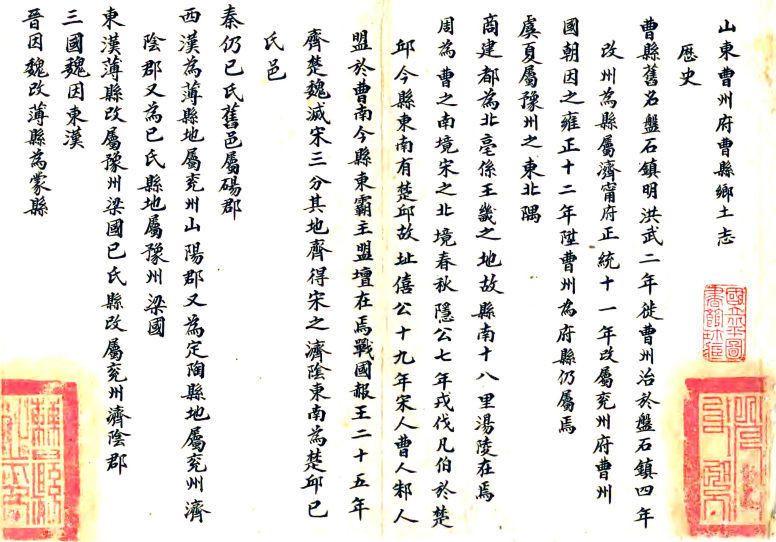 山東曹州府曹縣鄉土志
歷史
曹縣舊名盤石鎮明洪武二年徙曹州治於盤石鎮四年
改州為縣屬濟甯府正統十一年改屬兗州府曹州
國朝因之雍正十二年陞曹州為府縣仍屬焉
虞夏屬豫州之東北隅
商建都為北亳係王畿之地故縣南十八里湯陵在焉
周為曹之南境宋之北境春秋隱公七年戎伐凡伯於楚
邱今縣東南有楚邱故址僖公十九年宋人曹人邾人
盟於曹南今縣東霸主盟壇在焉戰國報王二十五年
齊楚魏滅宋三分其地齊得宋之濟陰東南為楚邱已
氏邑
秦仍已氏舊邑屬碭郡
西漢為薄縣地屬兗州山陽郡又為定陶縣地屬兗州濟
陰郡又為已氏縣地屬豫州梁國
東漢薄縣改屬豫州梁國已氏縣改屬兗州濟陰郡
三國魏因東漢
晉因魏改薄縣為蒙縣